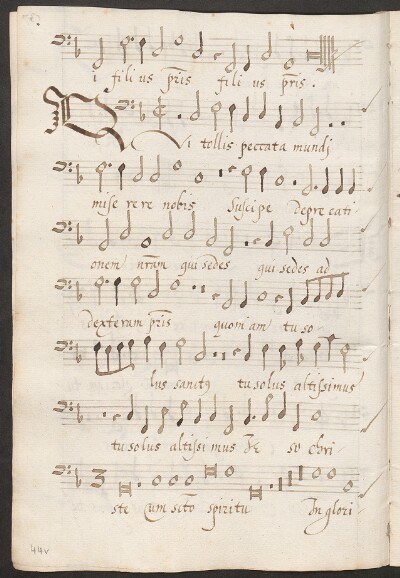 i filius pris filius pris.
Qui tollis peccata mundj
miserere nobis Suscipe deprecati-
onem nram qui sedes qui sedes ad
dexteram pris quoniam tu so-
lus sanctus tu solus altissimus
tu solus altissimus Je so chri-
ste cum scto spiritu In glori-
44v